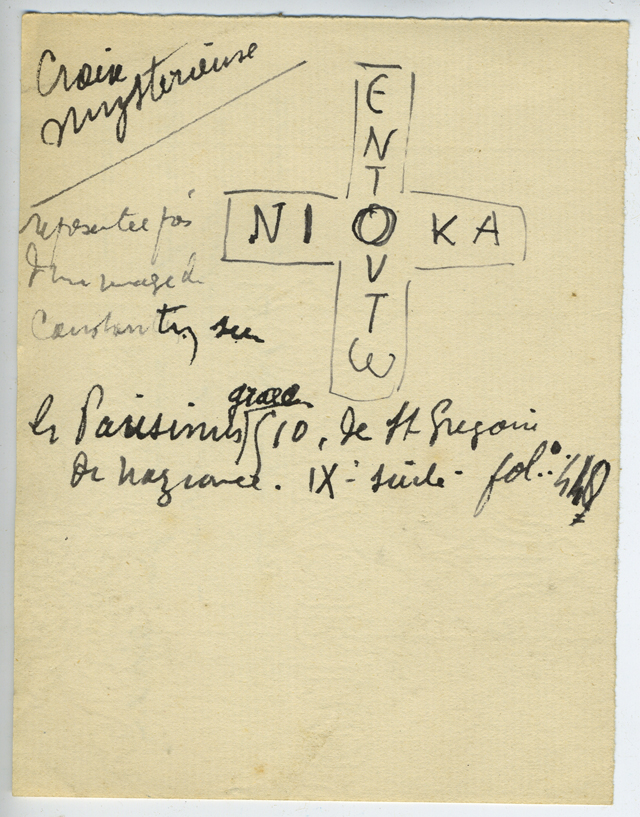 Croix
mystérieuse
E
N
T
NI O KA
V
T
ω
représentée près
d'une image de
Constantin, sur
le Parisinus graec 510, de St Grégoire
de Nazianze. IX<sup>e</sup> siècle - fol. 440